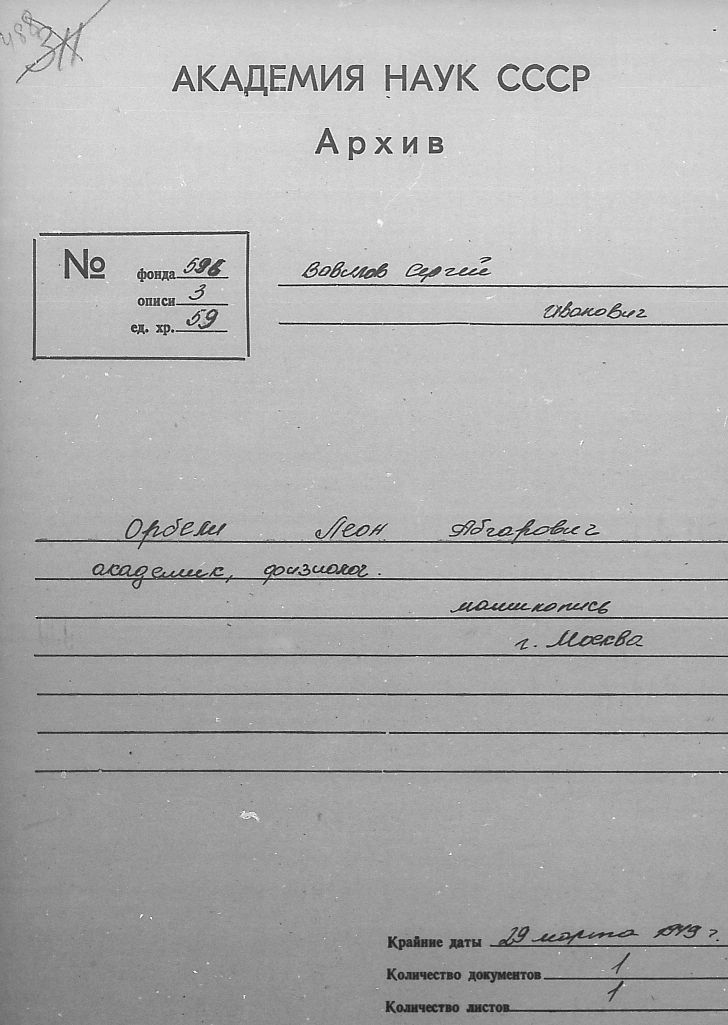 488
311
АКАДЕМИЯ НАУК СССР
Архив
№
фонда 596
описи 3
ед. хр. 59
Вавилов Сергей
Иванович
Орбели Леон Абгарович
академик, физиолог.
машинопись
г. Москва
Крайние даты 29 марта 1949 г.
Количество документов 1
Количество листов 1